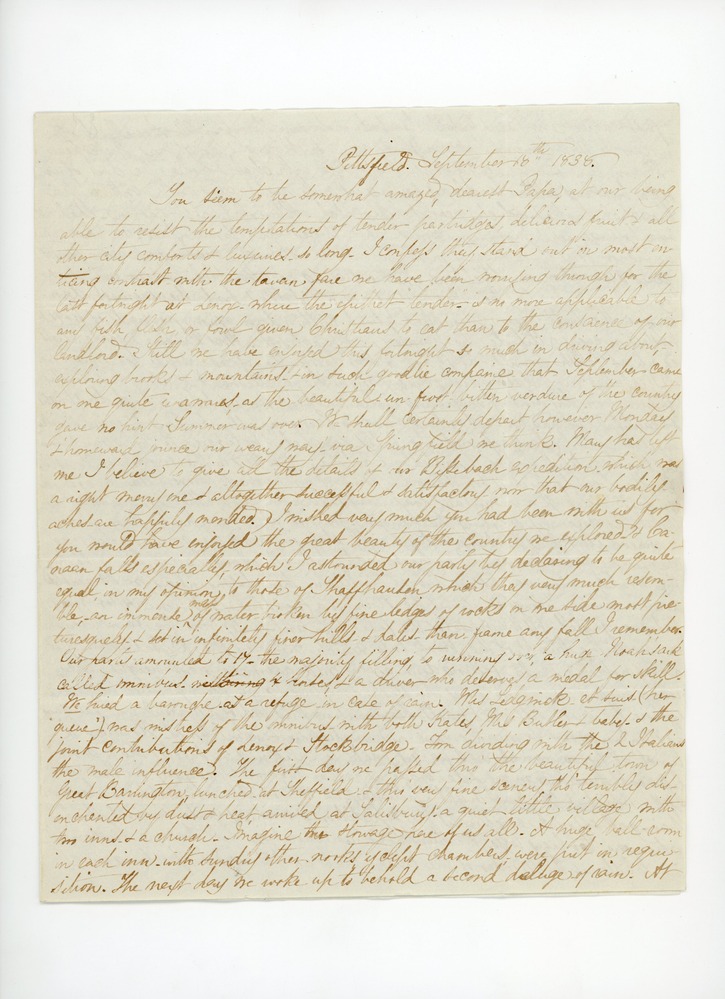 Pittsfield. September 16th 1838.
You seem to be somewhat amazed, dearest Papa, at our being
able to resist the temptations of tender partridges, delicious fruit & all
other city comforts & luxuries so long. I confess they stand out in most en-
ticing contrast with the tavern fare we have been
through for the
last fortnight at Lenox - where the epithet tender - is no more applicable to
any fish flesh or fowl given Christians to eat than to the conscience of our
landlord. Still we have enjoyed this fortnight so much in driving about,
exploring brooks & mountains & in such goodlie companie that September came
on me quite unawares - as the beautiful & un-frost-bitten verdure of the country
gave no hint Summer was over. We shall certainly depart however Monday
& homeward our weary way via Springfield we think. Mary has left
me I believe to give all the details of our expedition which was
a right merry one & altogether successful & satisfactory now that our bodily
aches are happily mended. I wished very much you had been with us for
you would have enjoyed the great beauty of the country we explored & Ca-
naan falls especially, which I astounded our party by declaring to be quite
equal in my opinion, to those of Shaffhausen which they very much resem-
ble, an immense mass of water broken by fine ledges of rocks on one side most pic-
turesquely & set in infinitely finer hills & dales than frame any fall I remember.
Our party amounted to 17 - the majority filling, to running over, a huge Noahs ark
called omnibus - & horses, & a driver who deserves a medal for skill.
We hired a barouche as a refuge in case of rain. Mrs Sedgwick et suis (her
"queue") was mistress of the omnibus with both Kates, Mrs Butler & baby - & the
joint contributions of Lenox & Stockbridge. Tom dividing with the 2 Italians
the male influence. The first day we passed thro' the beautiful town of
Great Barrington, lunched at Sheffield & thro' very fine scenery, tho' terribly dis-
enchanted by dust & heat, arrived at Salisbury, a quiet little village with
two inns & a church - Imagine the stowage here of us all. A huge ball room
in each inn - with sundry other nooks yclept chambers were put in requi-
sition. The next day we woke up to behold a second deluge of rain. At